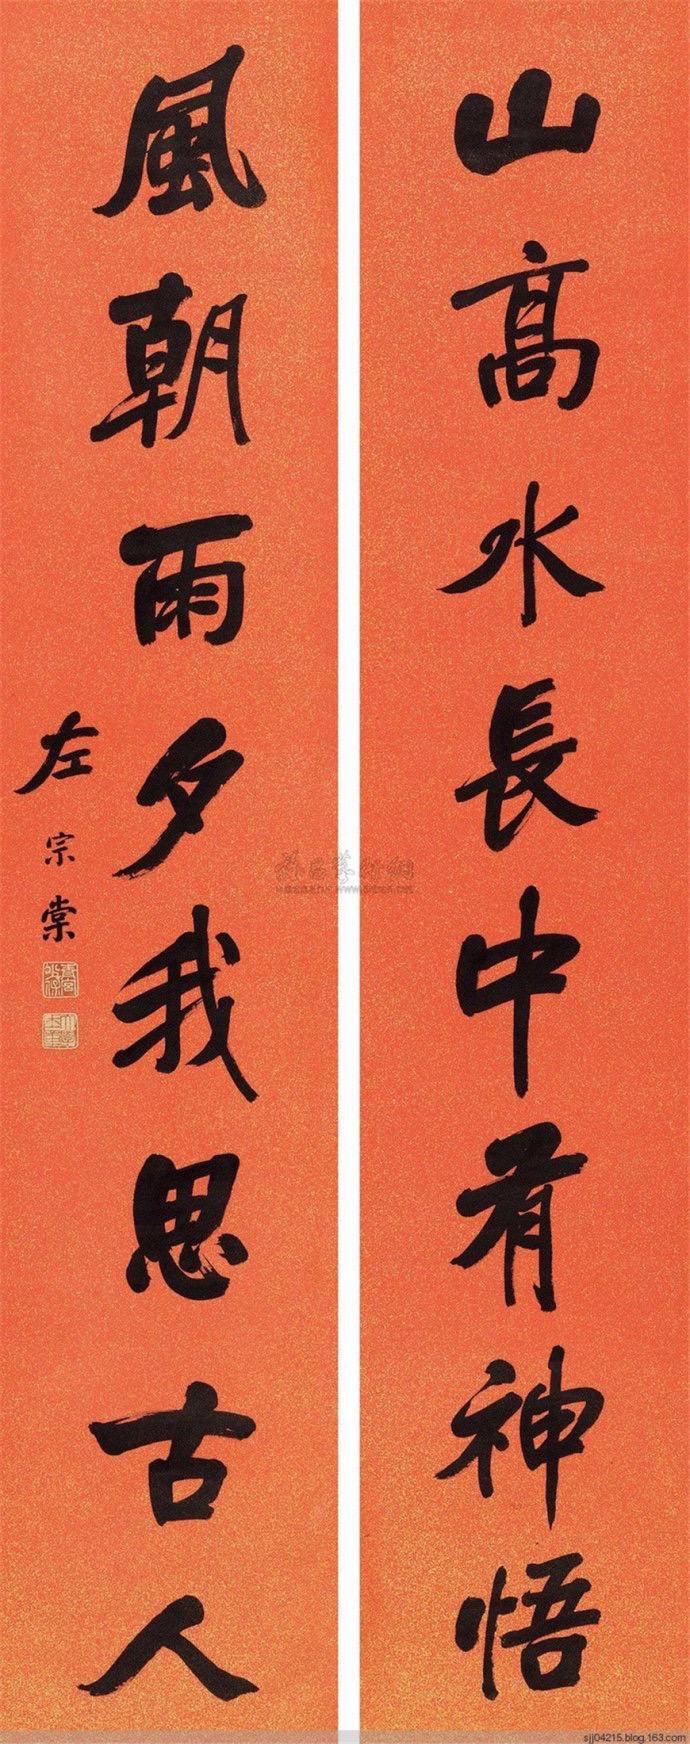 山高水長中有神悟
風朝雨夕我思古人
左宗棠
sjj04215.blog.163.com